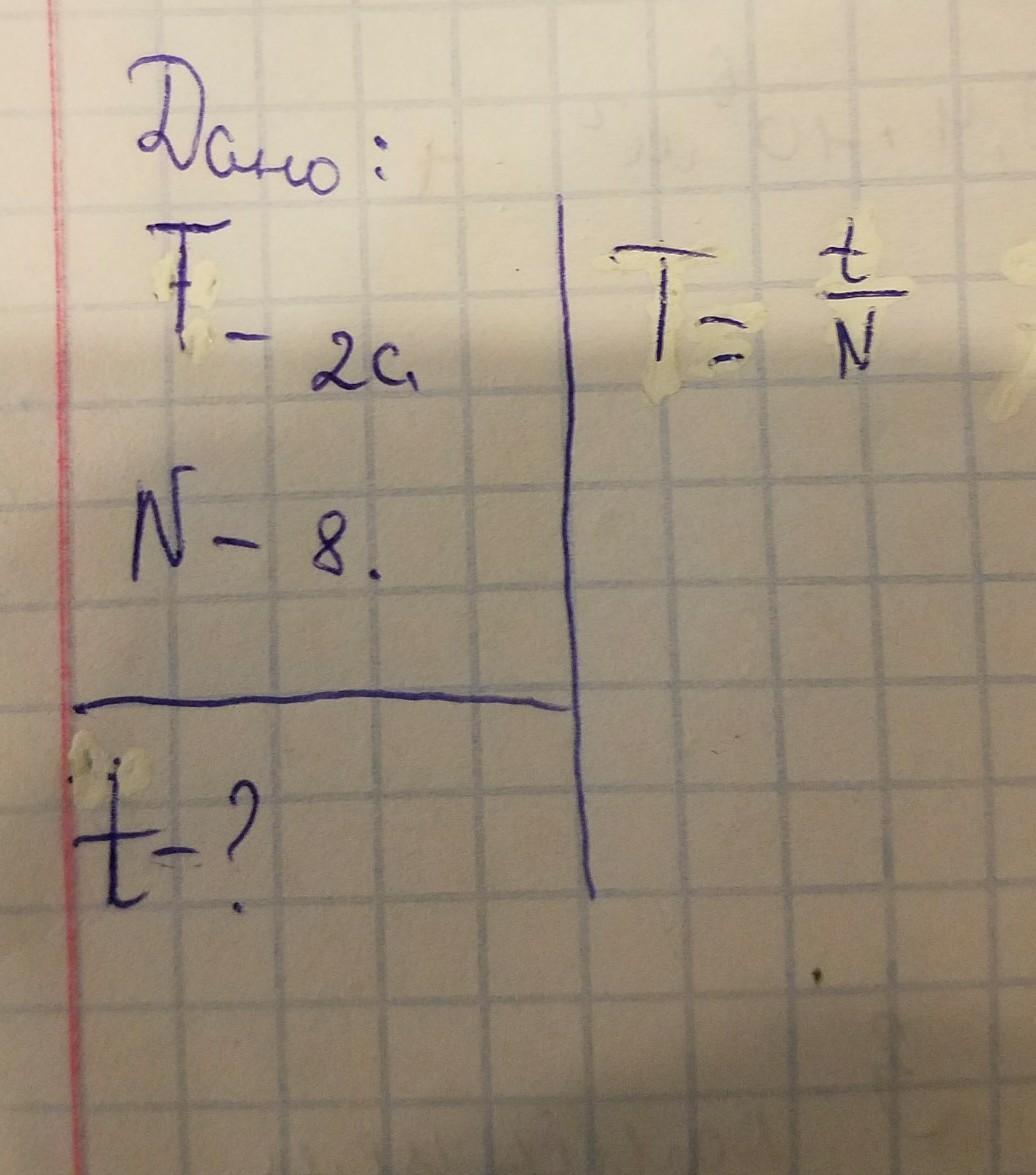 Дано:
T - 2с
N - 8.
t - ?
T = t/N